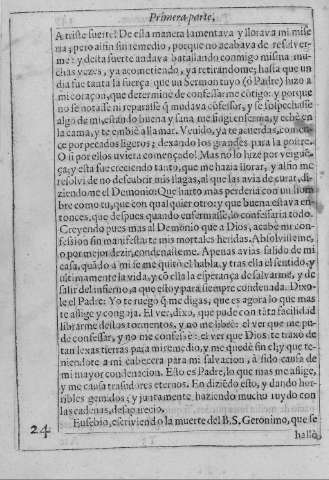 Primera parte,
A triste suerte! De esta manera lamentava y llorava mi mise
ria; pero al fin sin remedio, porque no acabava de resolver-
me: y desta suerte andava batallando conmigo misma mu-
chas vezes, ya acometiendo, ya retirandome; hasta que un
dia fue tanta la fuerça que un Sermon tuyo (ò Padre) hizo a
mi coraçon, que determinè de confessarme cõtigo: y porque
no se notasse ni reparasse q̃ mudava cõfessor, y se sospechasse
algo de mi, estando buena y sana me fingi enferma, y echè en
la cama, y te embiè a llamar. Venido, ya te acuerdas, comen-
cè por pecados ligeros; dexando los grandes para la postre.
O si por ellos uviera començado! Mas no lo hize por verguẽ-
ça; y esta fue creciendo tanto, que me hazia llorar, y al fin me
resolvi de no descubrir mis llagas, al que las avia de curar, di-
ziendome el Demonio: Que harto mas perderia con un hom
bre como tu, que con qualquier otro: y que buena estava en-
tonces, que despues quando enfermasse, lo confessaria todo.
Creyendo pues mas al Demonio que a Dios, acabè mi con-
fession sin manifestarte mis mortales heridas. Absolvisteme,
o por mejor dezir, condenasteme. Apenas avias salido de mi
casa, quãdo a mi se me quitò el habla, y tras ella el sentido, y
ultimamente la vida, y cõ ella la esperança de salvarme, y de
salir del infierno, a que estoy para siempre condenada. Dixo-
le el Padre: Yo te ruego q̃ me digas, que es agora lo que mas
te aflige y congoja. El ver, dixo, que pude con tãta facilidad
librarme destos tormentos, y no me librè: el ver que me pu-
de confessar, y no me confessè: el ver que Dios te traxo de
tan lexas tierras para mi remedio, y me quedè sin el; y que te-
niendote a mi cabecera para mi salvacion, à sido causa de
mi mayor condenacion. Esto es Padre, lo que mas me aflige,
y me causa trasudores eternos. En diziẽdo esto, y dando hor-
ribles gemidos; y juntamente haziendo mucho ruydo con
las cadenas, desaparecio.
Eusebio, escriviendo la muerte del B. S. Geronimo, que se
hallò
24